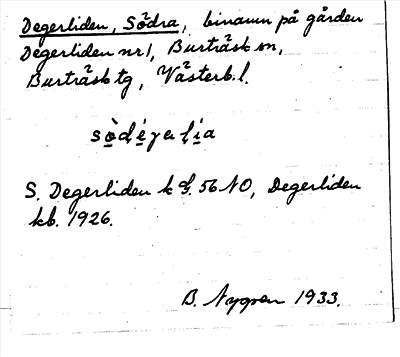 Degerliden, Södra, binamn på gården
Degerliden nr 1, Burträsk sn,
Burträsk tg, Västerb. l.
S. Degerliden k 56 NO, Degerliden
kb. 1926.
B. Nygren 1933.